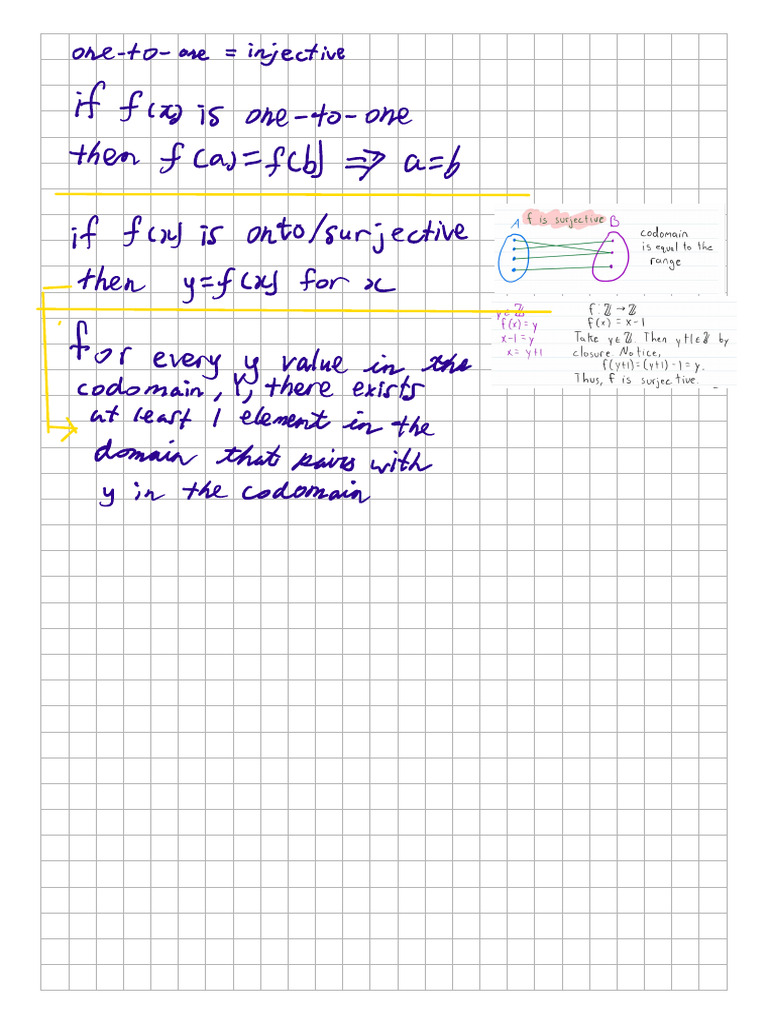 one-to-one = injective
if f(x) is one-to-one
then f(a)=f(b) ⇒ a=b
if f(x) is onto/surjective
then y=f(x) for x
For every y value in the
codomain, Y, there exists
at least 1 element in the
domain that pairs with
y in the codomain
f is surjective
A B
codomain
is equal to the
range
y∈ℤ
f(x)=y
x-1=y
x=y+1
f:ℤ→ℤ
f(x)=x-1
Take y∈ℤ. Then y+1∈ℤ by
closure. Notice,
f(y+1)=(y+1)-1=y.
Thus, f is surjective.